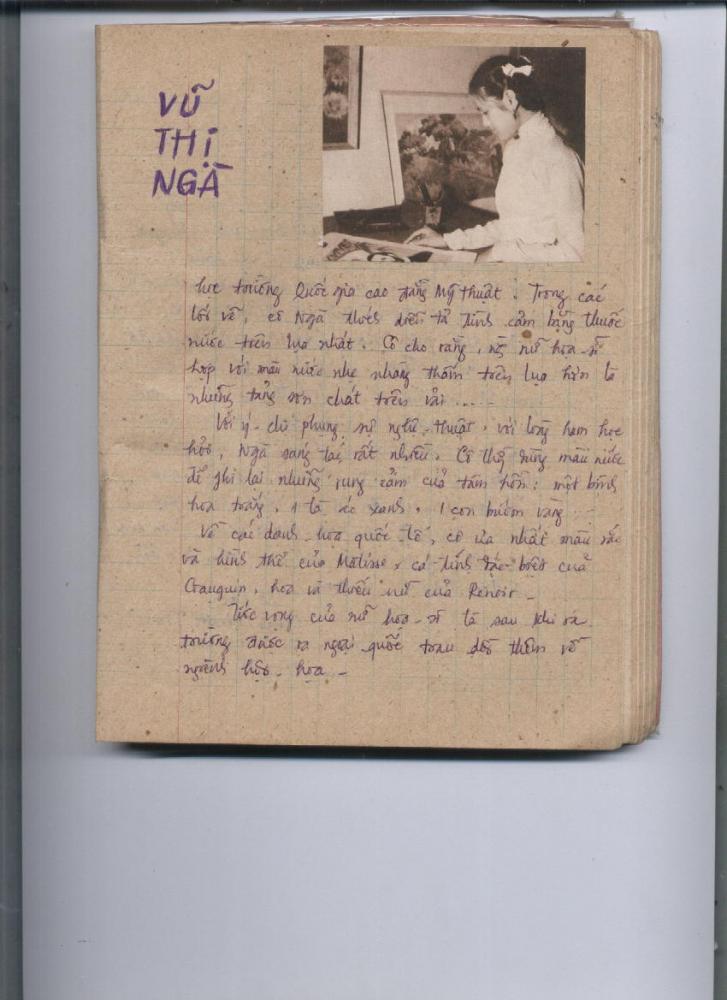 VŨ
THỊ
NGÀ
học trường Quốc gia cao đẳng Mỹ thuật. Trong các
lối vẽ, cô Ngà thích diễn tả tình cảm bằng thuốc
nước trên lụa nhất. Cô cho rằng, nữ họa-sĩ
hợp với mầu nước nhẹ nhàng thấm trên lụa hơn là
những tảng sơn chất trên vải ....
Với ý-chí phụng sự nghệ-thuật, với lòng ham học
hỏi, Ngà sáng tác rất nhiều. Cô thường dùng mầu nước
để ghi lại những rung cảm của tâm hồn: một bông
hoa trắng, 1 lá xanh, 1 con bướm vàng ...
Về các danh-họa quốc tế, cô ưa nhất mầu sắc
và hình thể của Matisse, cá tính đặc-biệt của
Gauguin, hoa và thiếu nữ của Renoir -
Ước vọng của nữ họa-sĩ là sau khi ra
trường được ra ngoại quốc trau dồi thêm về
ngành hội-họa -